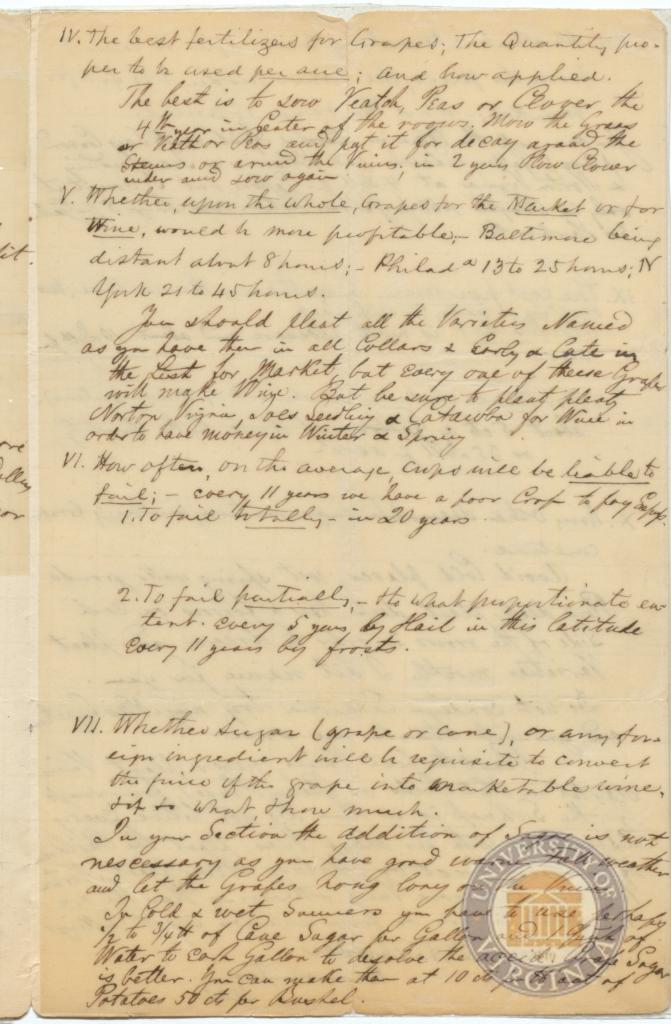 IV. The best fertilizers for Grapes; The Quantity pro-
per to be used per acre; and how applied.
The best is to sow Veatch, Peas or Clover the
4th year in Center of the rows. Mow the Grass
or Veatch or Peas and put it for decay around the
Stems or around the Vines, in 2 years Plow Clover
under and sow again
V. Whether, upon the whole, Grapes for the Market or for
Wine, would be more profitable;- Baltimore being
distant about 8 hours; - Philada 13 to 25 hours; N
York 21 to 45 hours.
You should plant all the Varieties Named
as you have them in all Collars & Early & Late in
the List for Market, but every one of these Grapes
will make Wine. But be sure to plant plenty
Norton Virgna, Ives Seedling & Catawba for Wine in
order to have money in Winter & Spring
VI. How often, on the average, crops will be liable to
fail; - every 11 years we have a poor Crop to pay
1. To fail totally - in 20 years.
2. To fail partially, - & to what proportionate ex-
tent. every 5 years by Hail in this latitude
Every 11 years by frosts.
VII. Whether Sugar (grape or cane), or any for-
eign ingredient will be requisite to convert
the juice of the grape into marketable wine,
& if so what, & how much.
In your Section the addition of Sugar is not
nescessary as you have good warm weather
and let the Grapes hang long on the Vines
In Cold & wet Summers you have to use perhaps
1/2 to 3/4 th of Cane Sugar per Gallon of
Water to each Gallon to desolve the Sugar
is better. You can make them at 10 ct out of
Potatoes 50 ct per Bushel.
it.
or
UNIVERSITY OF
VIRGINIA